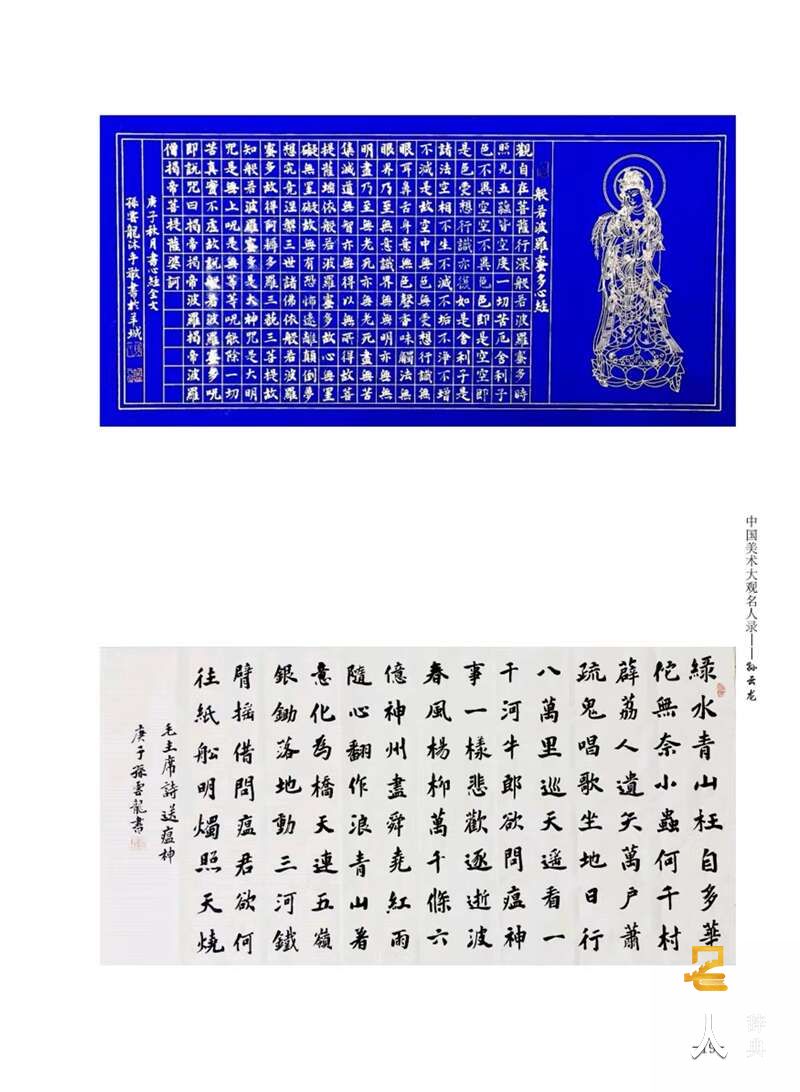 般若波羅蜜多心經
觀自在菩薩行深般若波羅蜜多時
照見五蘊皆空度一切苦厄舍利子
色不異空空不異色色即是空空即
是色受想行識亦復如是舍利子是
諸法空相不生不滅不垢不淨不增
不減是故空中無色無受想行識無
眼耳鼻舌身意無色聲香味觸法無
眼界乃至無意識界無無明亦無無
明盡乃至無老死亦無老死盡無苦
集滅道無智亦無得以無所得故菩
提薩埵依般若波羅蜜多故心無罣
礙無罣礙故無有恐怖遠離顛倒夢
想究竟涅槃三世諸佛依般若波羅
蜜多故得阿耨多羅三藐三菩提故
知般若波羅蜜多是大神呪是大明
呪是無上呪是無等等呪能除一切
苦真實不虛故說般若波羅蜜多呪
即說呪曰揭帝揭帝波羅揭帝波羅
僧揭帝菩提薩婆訶
庚子秋月書心經全文
孫雲龍沐手敬書於羊城
中国美术大观名人录——孙云龙
綠水青山枉自多華
佗無奈小蟲何千村
薜荔人遺矢萬户蕭
疏鬼唱歌坐地日行
八萬里巡天遥看一
千河牛郎欲問瘟神
事一樣悲歡逐逝波
春風楊柳萬千條六
億神州盡舜堯紅雨
隨心翻作浪青山着
意化為橋天連五嶺
銀鋤落地動三河鐵
臂摇借問瘟君欲何
往紙船明燭照天燒
毛主席詩送瘟神
庚子孫雲龍書
名
人
辞典